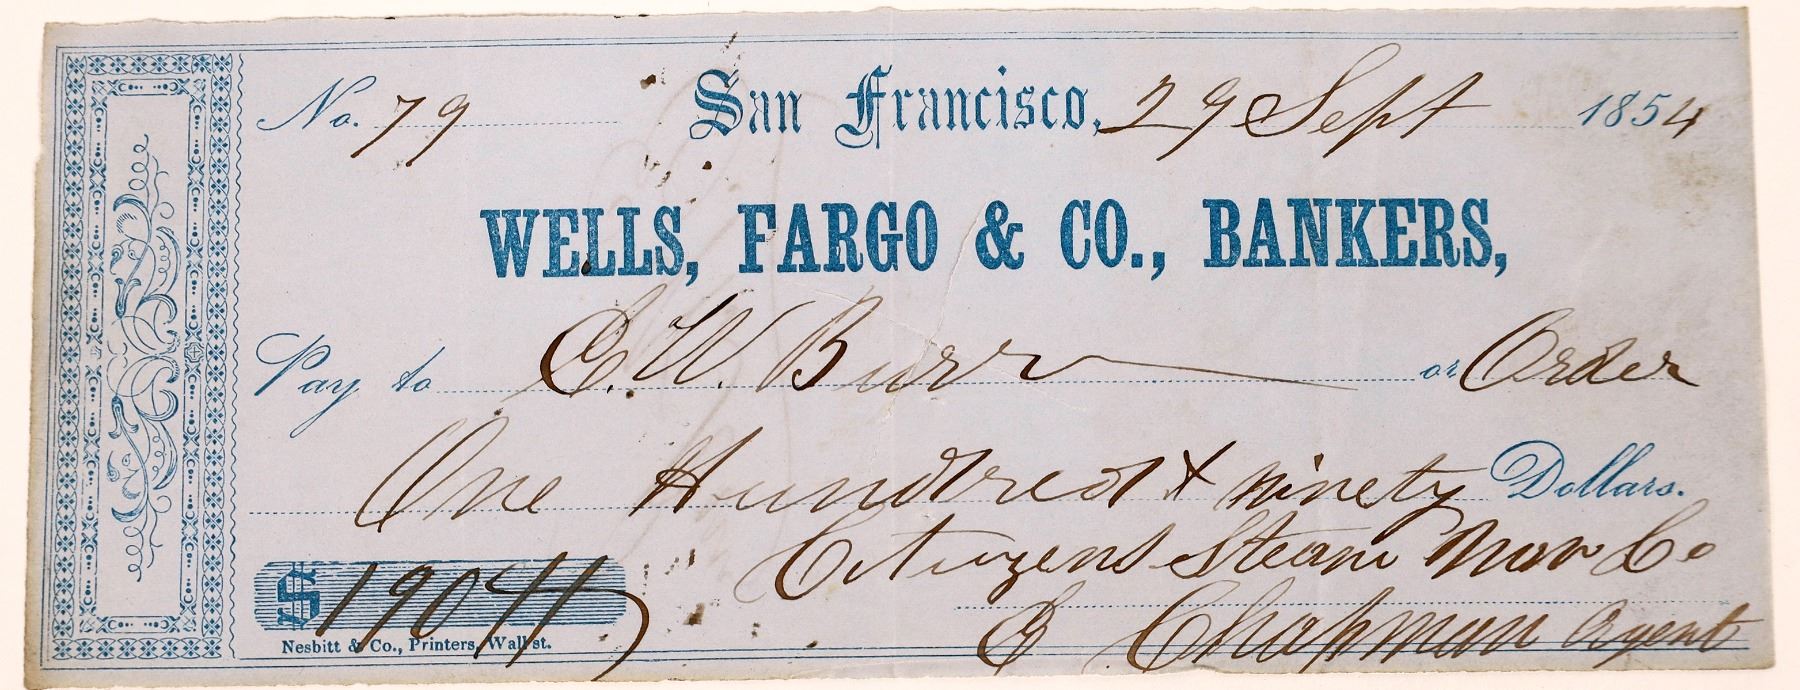 No. 79 San Francisco, 29 Sept 1854
WELLS, FARGO & CO., BANKERS,
Pay to C. W. Burr or Order
One Hundred & ninety Dollars.
Citizens Steam Nav Co
$190
C Chapman Agent
Nesbitt & Co., Printers, Wall st.